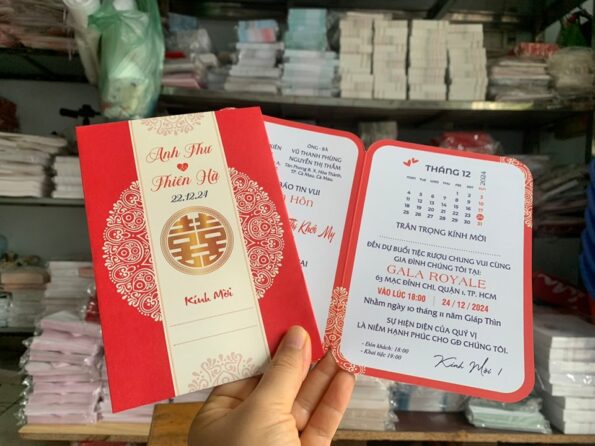 Anh Thư
Thiên Hà
22.12.24
囍
Kính Mời
ÔNG - BÀ
VŨ THANH PHÙNG
NGUYỄN THỊ THẮM
TP. Cà Mau, Cà Mau
ÁO TIN VUI
Hôn
Thị Khởi My
THÁNG 12
2024
TRÂN TRỌNG KÍNH MỜI
ĐẾN DỰ BUỔI TIỆC RƯỢU CHUNG VUI CÙNG
GIA ĐÌNH CHÚNG TÔI TẠI:
GALA ROYALE
63 MẠC ĐĨNH CHI, QUẬN 1, TP. HCM
VÀO LÚC 18:00 | 24/12/2024
Nhằm ngày 10 tháng 11 năm Giáp Thìn
SỰ HIỆN DIỆN CỦA QUÝ VỊ
LÀ NIỀM HẠNH PHÚC CHO GĐ CHÚNG TÔI.
- Đón khách: 18:00
- Khai tiệc 19:00
Kính Mời !